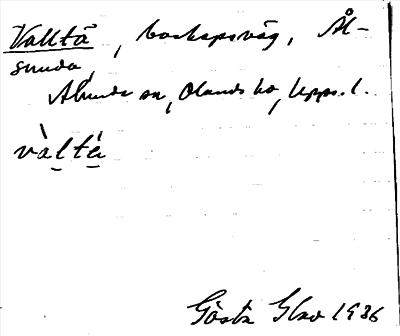 Valltå, boskapsväg, Ål-
sunda,
Alunda sn, Olands hd, Upps. l.
vàltå
Gösta 1936